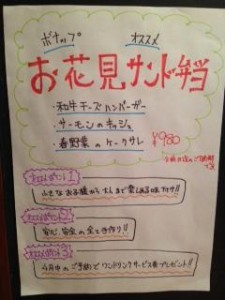 ボナップ オススメ
お花見サンド弁当
・和牛チーズハンバーガー
・サーモンのキッシュ
・春野菜のケークサレ
¥980
ポイント1
小さなお子様から大人まで愛しめる味です!!
ポイント2
安心、安全の全て手作り!!
ポイント3
4月中のご予約でワンドリンクサービス券プレゼント!!